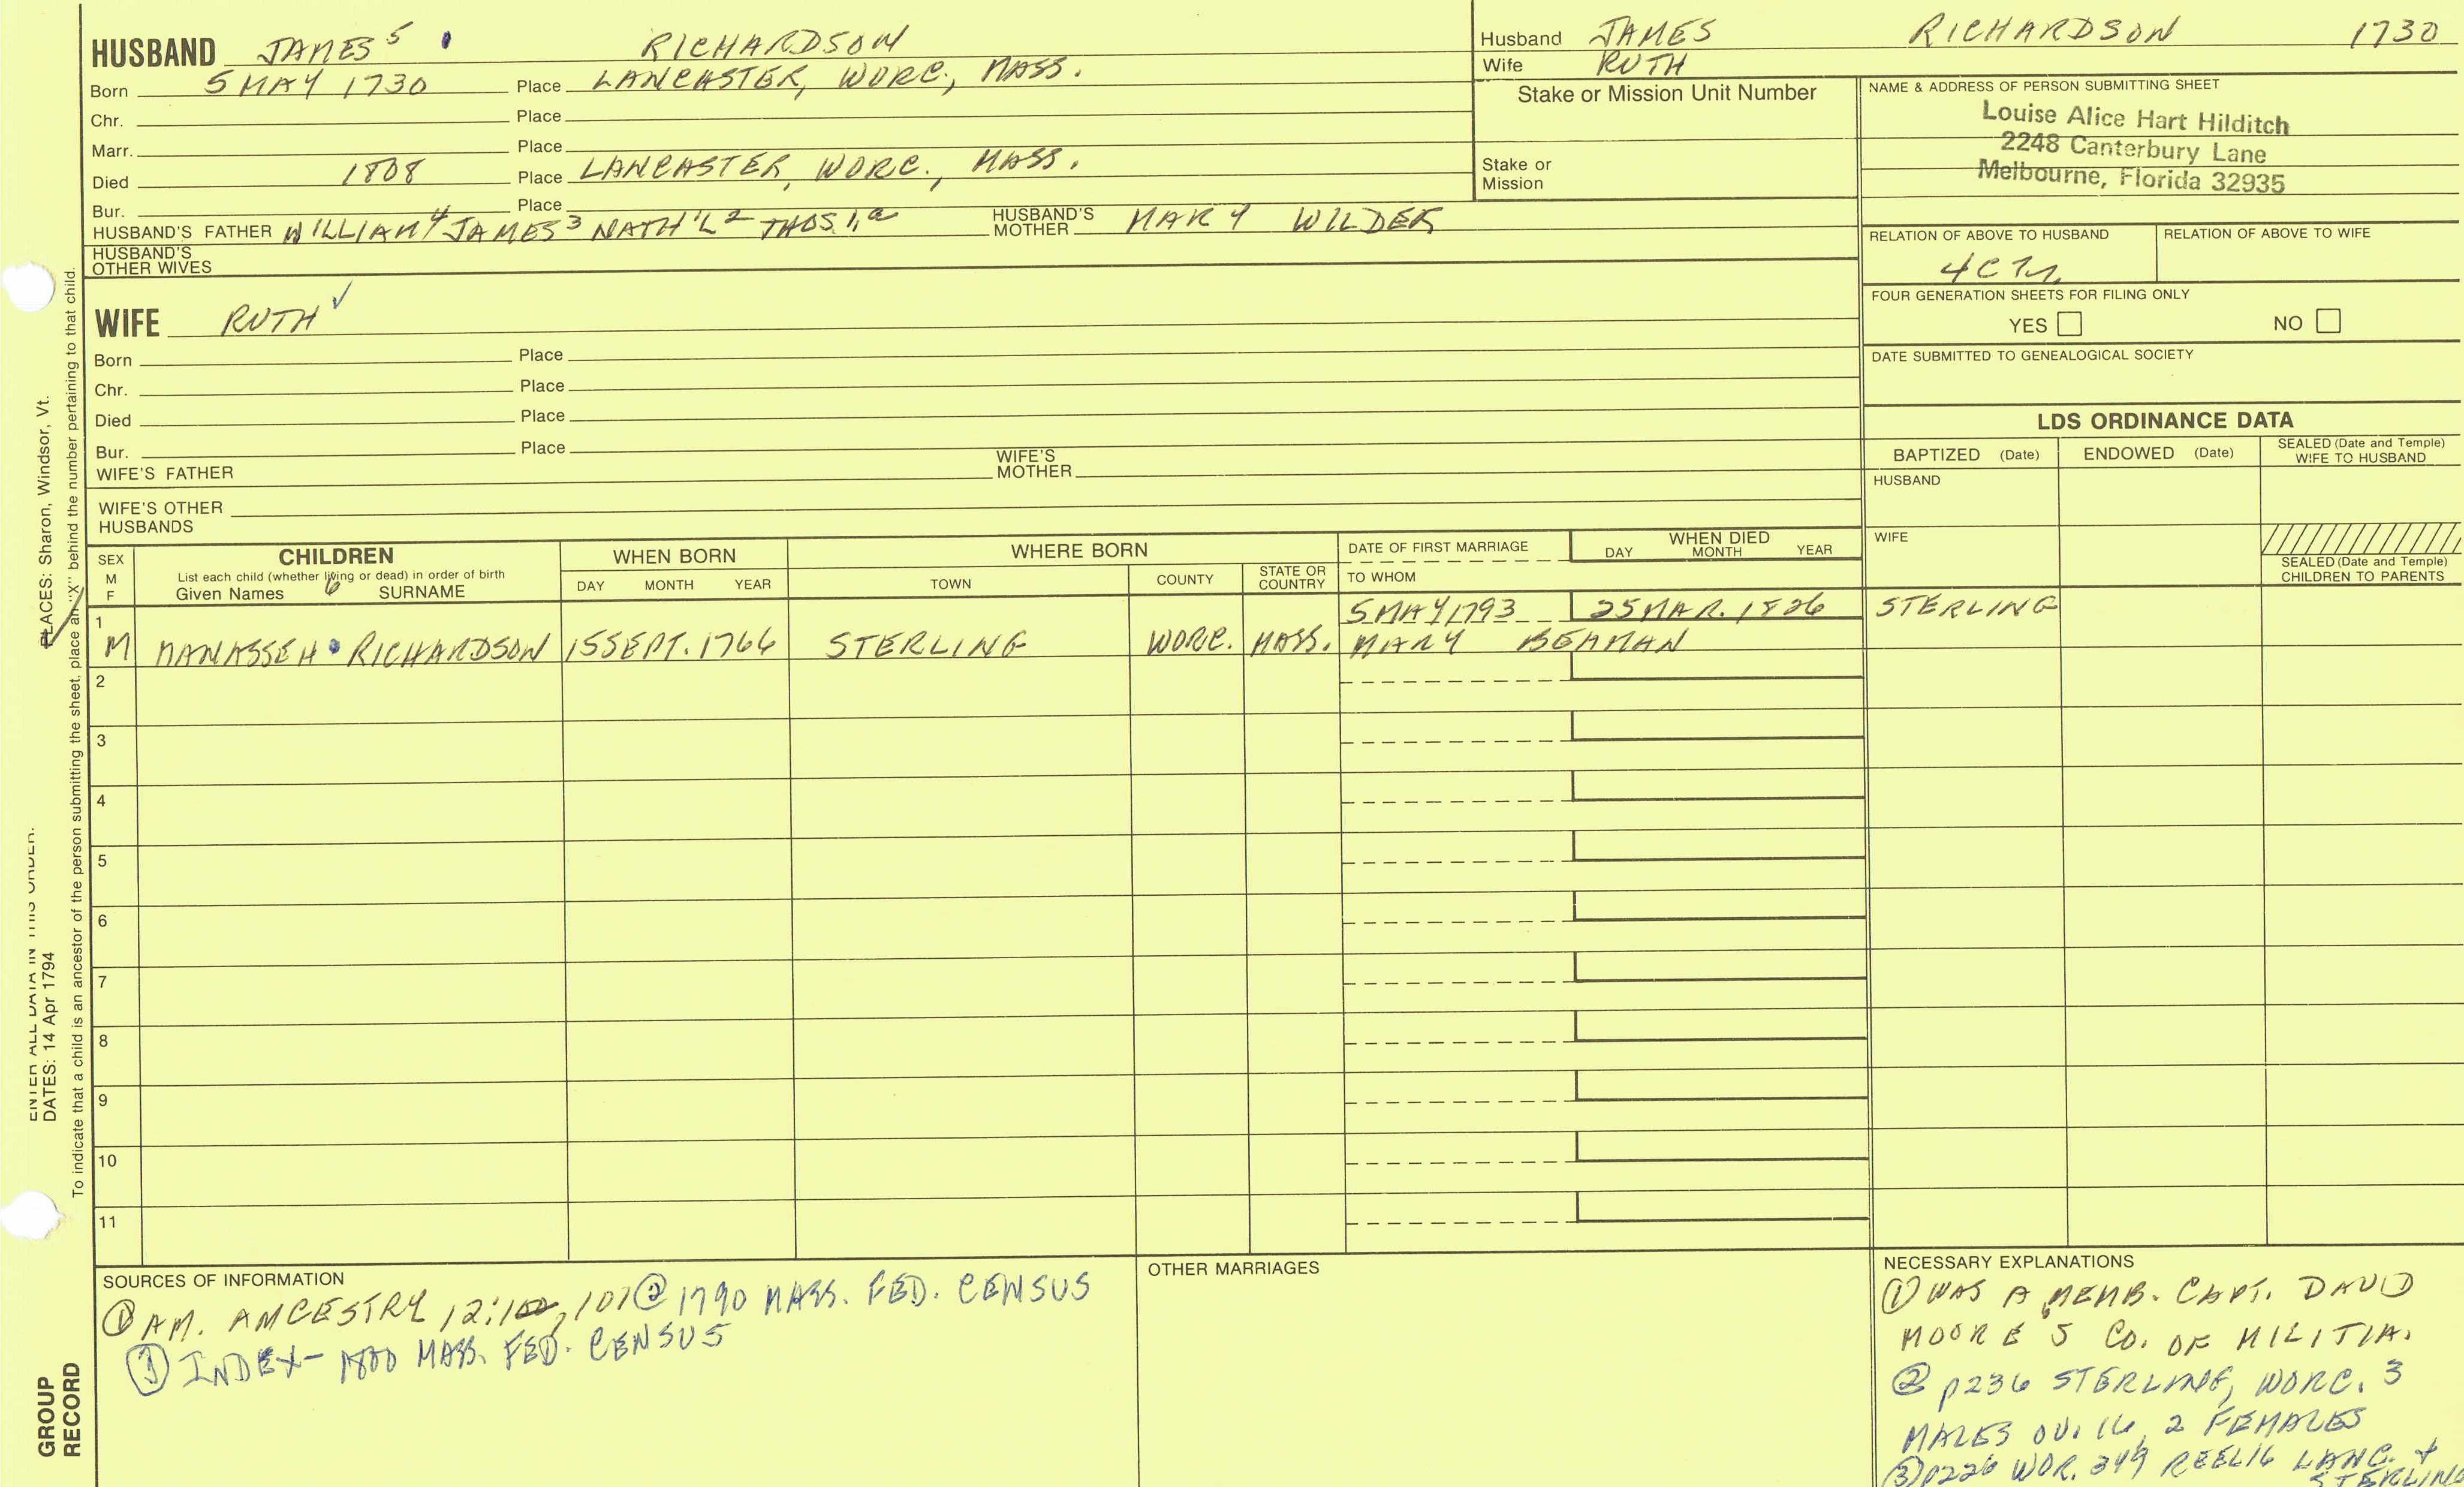 HUSBAND JAMES 5 RICHARDSON
Born 5 MAY 1730 Place LANCASTER, WORC., MASS.
Chr. Place
Marr. Place
Died 1808 Place LANCASTER, WORC., MASS.
Bur. Place
HUSBAND'S FATHER WILLIAM 4 JAMES 3 NATH'L 2 THOS. 1, a HUSBAND'S MOTHER MARY WILDER
HUSBAND'S OTHER WIVES
WIFE RUTH ✓
Born Place
Chr. Place
Died Place
Bur. Place
WIFE'S FATHER WIFE'S MOTHER
WIFE'S OTHER HUSBANDS
Husband JAMES RICHARDSON 1730
Wife RUTH
Stake or Mission Unit Number
Stake or Mission
NAME & ADDRESS OF PERSON SUBMITTING SHEET
Louise Alice Hart Hilditch
2248 Canterbury Lane
Melbourne, Florida 32935
RELATION OF ABOVE TO HUSBAND RELATION OF ABOVE TO WIFE
FOUR GENERATION SHEETS FOR FILING ONLY
YES NO
DATE SUBMITTED TO GENEALOGICAL SOCIETY
LDS ORDINANCE DATA
BAPTIZED (Date) ENDOWED (Date) SEALED (Date and Temple) WIFE TO HUSBAND
HUSBAND
WIFE
SEALED (Date and Temple) CHILDREN TO PARENTS
SEX M F
CHILDREN
List each child (whether living or dead) in order of birth
Given Names 6 SURNAME
WHEN BORN
DAY MONTH YEAR
WHERE BORN
TOWN COUNTY STATE OR COUNTRY
DATE OF FIRST MARRIAGE
TO WHOM
WHEN DIED
DAY MONTH YEAR
1 5 MAY 1793 25 MAR. 1826 STERLING
M MANASSEH RICHARDSON 15 SEPT. 1766 STERLING WORC. MASS. MARY BEAMAN
2
3
4
5
6
7
8
9
10
11
SOURCES OF INFORMATION
① AM. ANCESTRY 12:100, 107 ② 1790 MASS. FED. CENSUS
③ INDEX- 1800 MASS. FED. CENSUS
OTHER MARRIAGES
NECESSARY EXPLANATIONS
① WAS A MEMB. CAPT. DAVID
MOORE'S CO. OF MILITIA.
② p236 STERLING, WORC. 3
MALES OV. 16, 2 FEMALES
③ p226 WOR. 349 REEL16 LANC. +
STERLING
PLACES: Sharon, Windsor, Vt.
ENTER ALL DATA IN THIS ORDER:
DATES: 14 Apr 1794
To indicate that a child is an ancestor of the person submitting the sheet, place an "X" behind the number pertaining to that child.
GROUP
RECORD